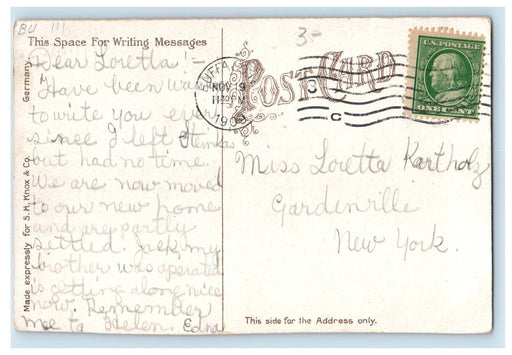 BU 111
3-
This Space For Writing Messages
POST CARD
U.S. POSTAGE
ONE CENT
BUFFALO
NOV 19
PM
3
C
Dear Loretta!-
Have been
to write you ever
since I left
but had no time.
We are now moved
to our new home
and are partly
settled. Jack, my
brother was operated
is getting along nice
now. Remember
me to Helen. Edna
Miss Loretta Kartholz
Gardenville
New York.
Made expressly for S. H. Knox & Co.
Germany
This side for the Address only.